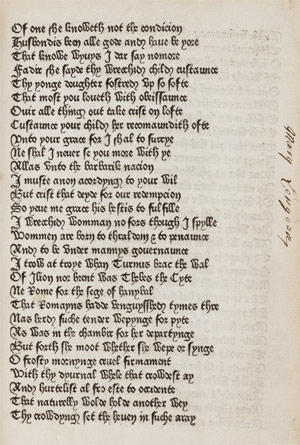 Of one she knoweth not the condicion
Husbondis ben alle gode and haue be yore
That knowe wyuys I dar say nomore
Fadir she sayde thy wrechidy childy custaunce
Thy yonge doughter fostredy vp so softe
That most you loueth with obeissaunce
Ouir alle thing out take crist on lofte
Custaunce your childy her recomaundith ofte
Vnto your grace for I shal to surrye
Ne shal I neuer se you more with ye
Allas vnto the barbarik nacion
I muste anon acordyng to your wil
But crist that deyde for our redempcion
So yeue me grace his hestis to fulfille
I wrechidy womman no fors though I spylle
Wommen are born to thraldom & to penaunce
And to be vnder mannys gouernaunce
I trow at troye whan Turnus brac the wal
Of Ilion nor brent was Thebes the Cyte
Ne Rome for the sege of hanybal
That Romayns hadde venguysshedy tymes thre
Nas herdy suche tender wepynge for pyte
As was in the chambir for her departynge
But forth she moot whether she wepe or synge
O frosty mornynge cruel firmament
With thy dyurnal while that crowdest ay
And hurtelist al fro este to occidente
That naturelly wolde holde another wey
Thy crowdyng set the heuen in suche aray
Mary